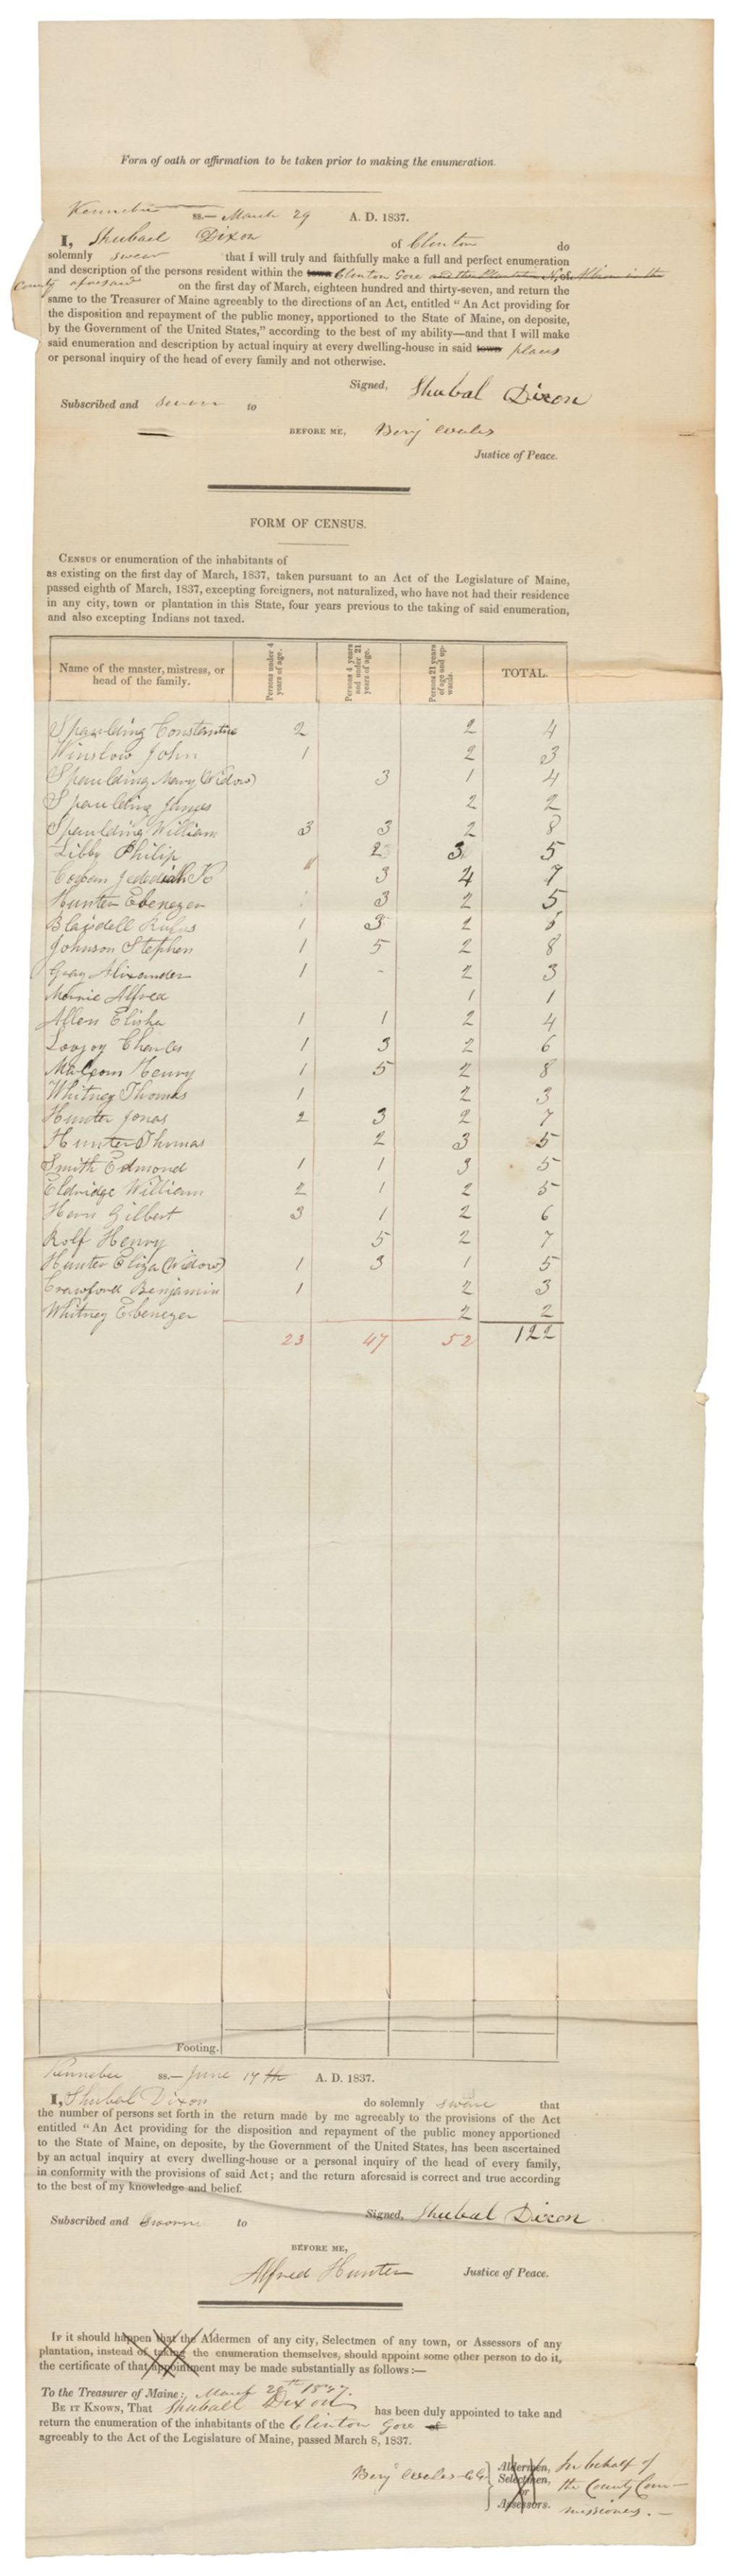 Form of oath or affirmation to be taken prior to making the enumeration.
Kennebec ss.— March 29 A. D. 1837.
I, Shubael Dixon of Clinton do
solemnly swear that I will truly and faithfully make a full and perfect enumeration
and description of the persons resident within the town Clinton Gore and the Plantation No. of Albion in the
County aforesaid on the first day of March, eighteen hundred and thirty-seven, and return the
same to the Treasurer of Maine agreeably to the directions of an Act, entitled "An Act providing for
the disposition and repayment of the public money, apportioned to the State of Maine, on deposite,
by the Government of the United States," according to the best of my ability—and that I will make
said enumeration and description by actual inquiry at every dwelling-house in said town places
or personal inquiry of the head of every family and not otherwise.
Signed, Shubal Dixon
Subscribed and sworn to
BEFORE ME, Benj Wales
Justice of Peace.
FORM OF CENSUS.
CENSUS or enumeration of the inhabitants of
as existing on the first day of March, 1837, taken pursuant to an Act of the Legislature of Maine,
passed eighth of March, 1837, excepting foreigners, not naturalized, who have not had their residence
in any city, town or plantation in this State, four years previous to the taking of said enumeration,
and also excepting Indians not taxed.
Name of the master, mistress, or head of the family. Persons under 4 years of age. Persons 4 years and under 21 years of age. Persons 21 years of age and upwards. TOTAL.
Spaulding Constantine 2 2 4
Winslow John 1 2 3
Spaulding Mary (Widow) 3 1 4
Spaulding James 2 2
Spaulding William 3 3 2 8
Libby Philip 2 3 5
Jedediah 3 4 7
Hunter Ebenezer 3 2 5
Blaisdell Rufus 1 3 2 6
Johnson Stephen 1 5 2 8
Gray Alixander 1 - 2 3
Alfred 1 1
Allen Elisha 1 1 2 4
Lovjoy Charles 1 3 2 6
Malcom Henry 1 5 2 8
Whitney Thomas 1 2 3
Hunter Jonas 2 3 2 7
Hunter Thomas 2 3 5
Smith Edmond 1 1 3 5
Eldridge William 2 1 2 5
Hern Gilbert 3 1 2 6
Rolf Henry 5 2 7
Hunter Eliza (Widow) 1 3 1 5
Crawford Benjamin 1 2 3
Whitney Ebenezer 2 2
23 47 52 122
Footing.
Kennebec ss.— June 17th A. D. 1837.
I, Shubal Dixon do solemnly swear that
the number of persons set forth in the return made by me agreeably to the provisions of the Act
entitled "An Act providing for the disposition and repayment of the public money apportioned
to the State of Maine, on deposite, by the Government of the United States, has been ascertained
by an actual inquiry at every dwelling-house or a personal inquiry of the head of every family,
in conformity with the provisions of said Act; and the return aforesaid is correct and true according
to the best of my knowledge and belief.
Signed, Shubal Dixon
Subscribed and Sworn to
BEFORE ME,
Alfred Hunter Justice of Peace.
IF it should happen that the Aldermen of any city, Selectmen of any town, or Assessors of any
plantation, instead of taking the enumeration themselves, should appoint some other person to do it,
the certificate of that appointment may be made substantially as follows:—
To the Treasurer of Maine: March 29th 1837.
BE IT KNOWN, That Shuball Dixon has been duly appointed to take and
return the enumeration of the inhabitants of the Clinton Gore of
agreeably to the Act of the Legislature of Maine, passed March 8, 1837.
Benj Wales
Aldermen, In behalf of
Selectmen, the County Com-
or
Assessors. missioners.—